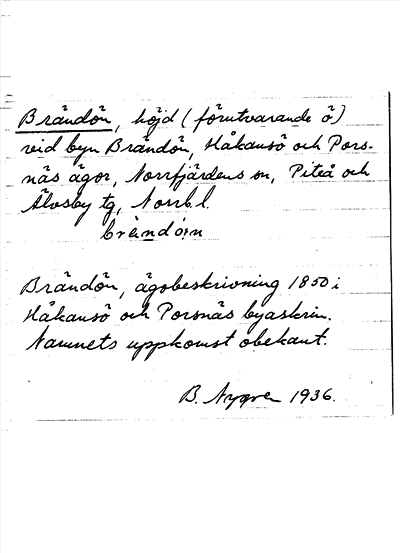 Brändön, höjd (förutvarande ö)
vid byn Brändön, Håkansö och Pors-
näs ägor, Norrfjärdens sn, Piteå och
Älvsby tg, Norrb. l.
brä̀ndö́n
Brändön, ägobeskrivning 1850 i
Håkansö och Porsnäs byaskrin.
Namnets uppkomst obekant.
B. Nygren 1936.